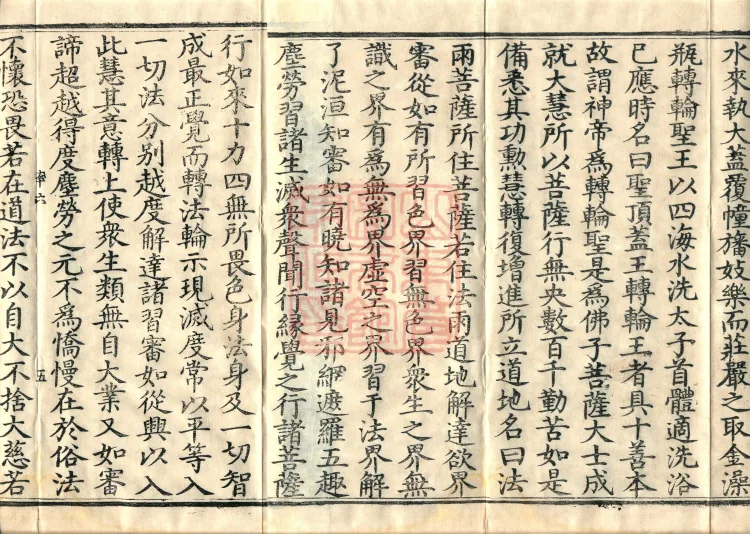 水來執大蓋覆幢旛妓樂而莊嚴之取金澡
瓶轉輪聖王以四海水洗太子首體適洗浴
已應時名曰聖頂蓋王轉輪王者具十善本
故謂神帝為轉輪聖是為佛子菩薩大士成
就大慧所以菩薩行無央數百千勤苦如是
備悉其功勳慧轉復增進所立道地名曰法
雨菩薩所住菩薩若住法雨道地解達欲界
審從如有所習色界習無色界衆生之界無
識之界有為無為界虛空之界習于法界解
了泥洹知審如有曉知諸見邪網遮羅五趣
塵勞習諸生滅衆聲聞行緣覺之行諸菩薩
行如來十力四無所畏色身法身及一切智
成最正覺而轉法輪示現滅度常以平等入
一切法分別越度解達諸習審如從興以入
此慧其意轉上使衆生類無自大業又如審
諦超越得度塵勞之元不為憍慢在於俗法
五
不懷恐畏若在道法不以自大不捨大慈若